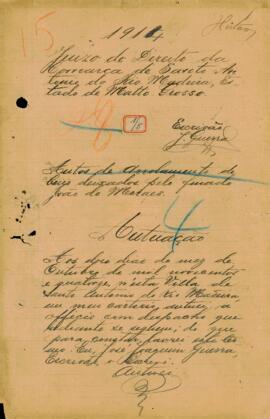 15
1914
Juizo de Direito da
Comarca de Santo An
tonio do Rio Madeira, Es
tado de Matto Grosso.
28
1/5
Escrivão
J. Guerra
Autos de Arrolamento de
bens deixados pelo finado
João de Moraes.
4
Autuação
Aos dois dias do mez de
Outubro de mil novecentos
e quatorze, nesta Villa de
Santo Antonio do Rio Madeira
em meu cartorio, autuei a
officio com despacho que
adiante se seguem; do que
para constar, lavrei este ter
mo. Eu, José Joaquim Guerra
Escrivão o